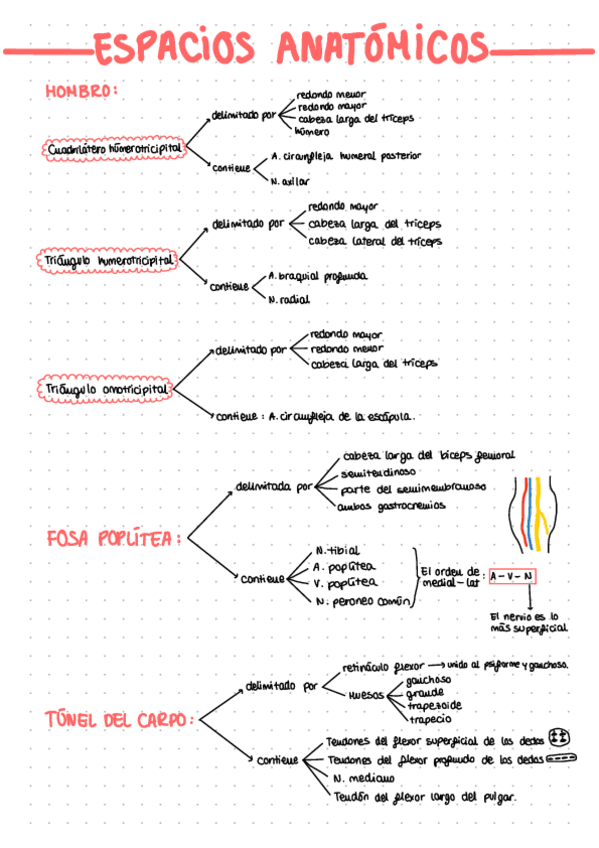 ESPACIOS ANATÓMICOS
HOMBRO:
Cuadrilátero húmerotricipital
delimitado por
redondo menor
redondo mayor
cabeza larga del tríceps
húmero
contiene
A. circunfleja humeral posterior
N. axilar
Triángulo humerotricipital
delimitado por
redondo mayor
cabeza larga del tríceps
cabeza lateral del tríceps
contiene
A. braquial profunda
N. radial
Triángulo omotricipital
delimitado por
redondo mayor
redondo menor
cabeza larga del tríceps
contiene: A. circunfleja de la escápula.
FOSA POPLÍTEA:
delimitada por
cabeza larga del bíceps femoral
semitendinoso
parte del semimembranoso
ambos gastrocnemios
contiene
N. tibial
A. poplítea
V. poplítea
N. peroneo común
El orden de
medial-lat : A-V-N
El nervio es lo
más superficial
TÚNEL DEL CARPO:
delimitado por
retináculo flexor → unido al psiforme y ganchoso.
Huesos
ganchoso
grande
trapezoide
trapecio
contiene
Tendones del flexor superficial de los dedos
Tendones del flexor profundo de los dedos
N. mediano
Tendón del flexor largo del pulgar.